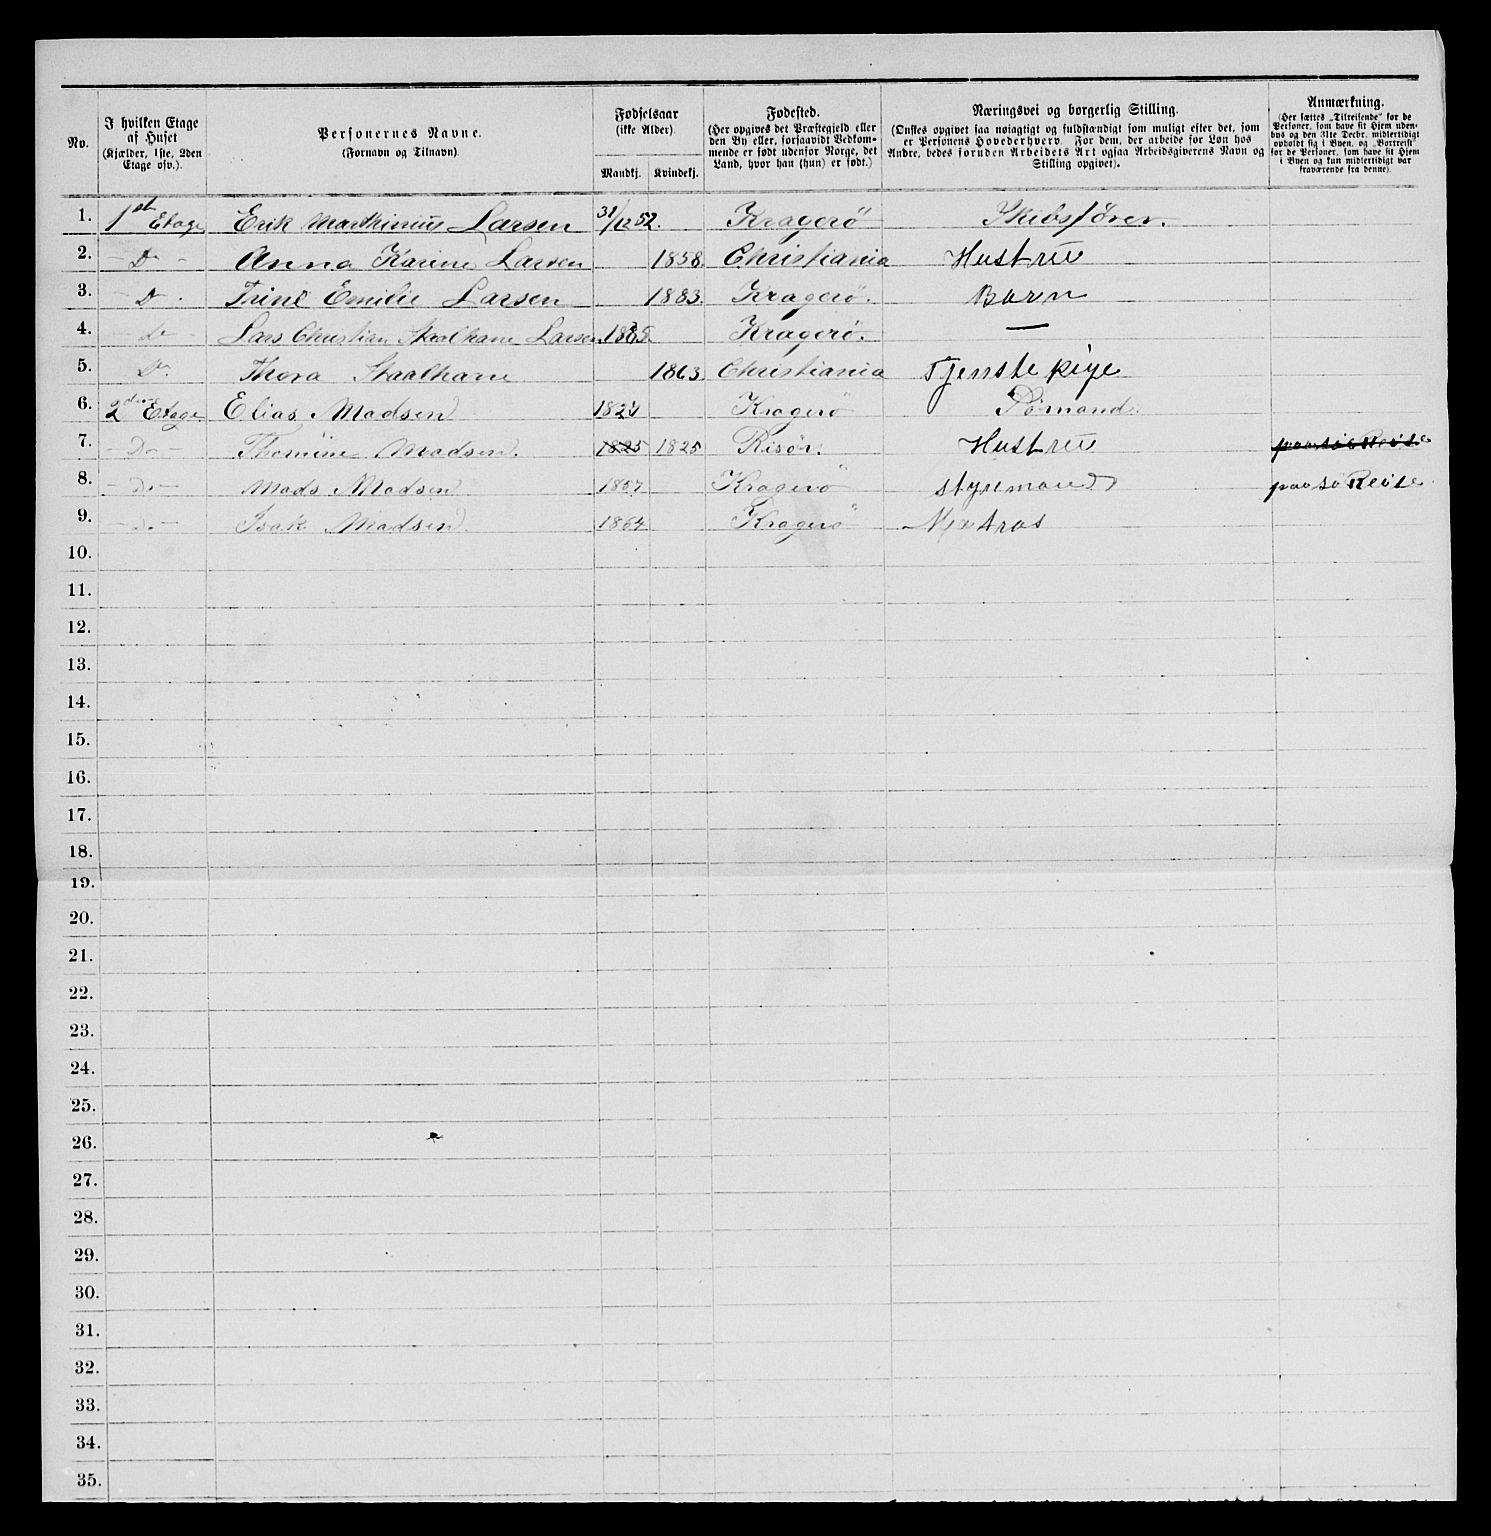 No. I hvilken Etage af Huset (Kjælder, 1ste, 2den Etage osv.). Personernes Navne. (Fornavn og Tilnavn). Fødselsaar (ikke Alder). Mandkj. Kvindekj. Fødested. (Her opgives det Præstegjeld eller den By eller, forsaavidt Vedkommende er født udenfor Norge, det Land, hvor han (hun) er født.) Næringsvei og borgerlig Stilling. (Ønskes opgivet saa nøiagtigt og fuldstændigt som muligt efter det, som er Personens Hovederhverv. For dem, der arbeide for Løn hos Andre, bedes foruden Arbeidets Art ogsaa Arbeidsgiverens Navn og Stilling opgivet). Anmærkning. (Her sættes „Tilreisende“ for de Personer, som have sit Hjem udenbys og den 31te Decbr. midlertidigt opholdt sig i Byen, og „Bortreist“ for de Personer, som have sit Hjem i Byen og kun midlertidigt var fraværende fra denne).
1. 1st Etage Erik Marthinius Larsen 31/12 52. Kragerö Skibsfører.
2. - Do - Anna Karine Larsen 1858. Christiania Hustru
3. - Do. Trine Emilie Larsen 1883. Kragerö. Barn
4. - Do Lars Christian Staalhane Larsen 1885. Kragerö. —
5. - Do. Thora Staalhane 1863. Christiania Tjenstepige
6. 2den Etage Elias Madsen 1824 Kragerö Sömand.
7. - Do - Thomine Madsen. 1825 1825 Risör. Hustru paa sö Reise
8. - Do - Mads Madsen 1857 Kragerö styrmand paa sö Reise
9. - Do - Isak Madsen. 1864 Kragerö Matros
10.
11.
12.
13.
14.
15.
16.
17.
18.
19.
20.
21.
22.
23.
24.
25.
26.
27.
28.
29.
30.
31.
32.
33.
34.
35.